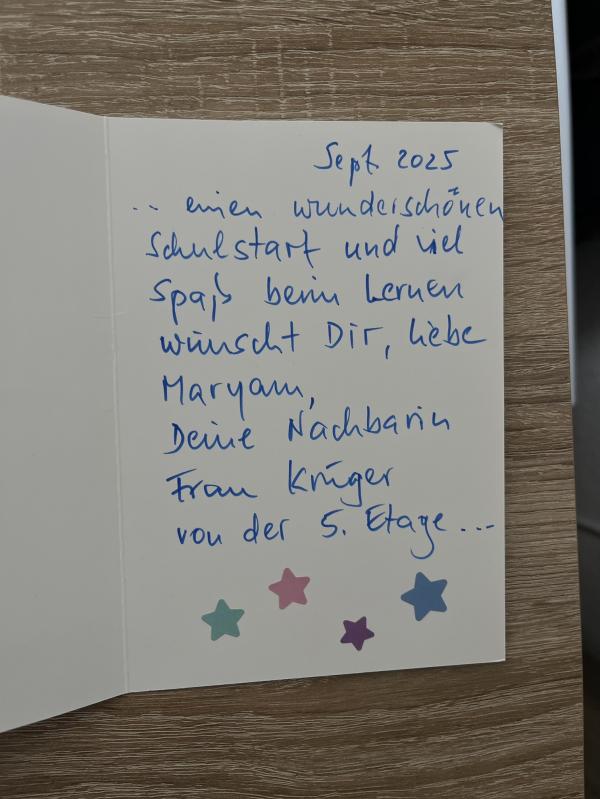 Sept. 2025
.. einen wunderschönen
Schulstart und viel
Spaß beim Lernen
wünscht Dir, liebe
Maryam,
Deine Nachbarin
Frau Krüger
von der 5. Etage...